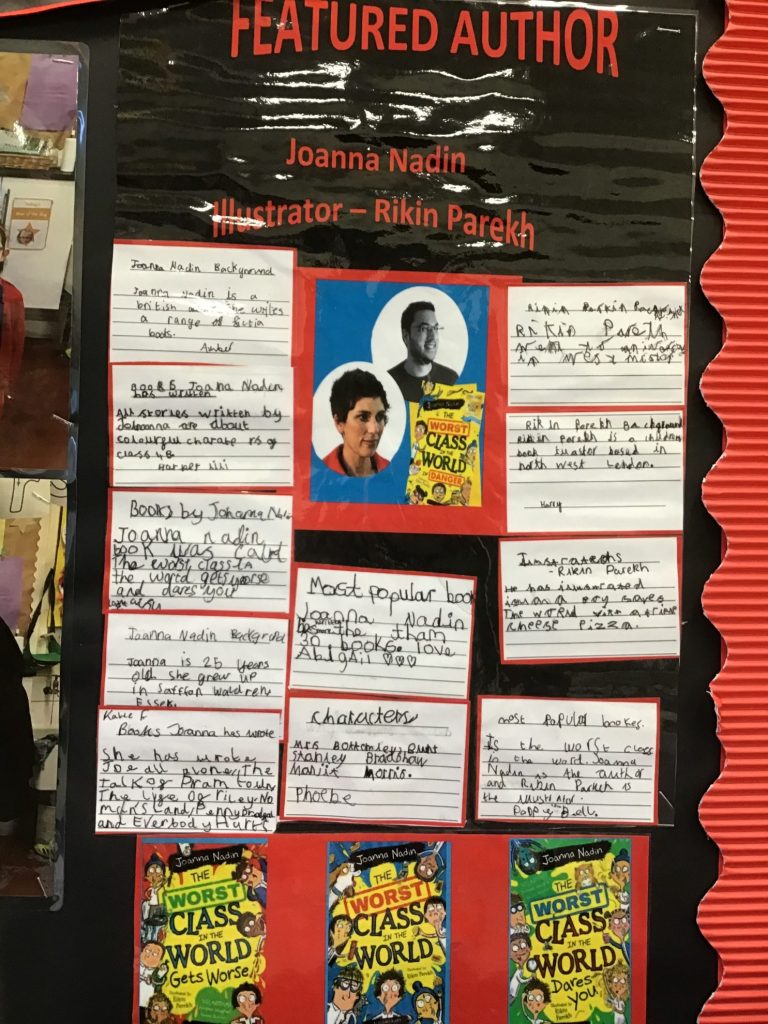 FEATURED AUTHOR
Joanna Nadin
Illustrator – Rikin Parekh
Joanna Nadin Background
Joanna Nadin is a
british she writes
a range of fictia
books.
Amber
books Joanna Nadin
has written
All stories written by
Johoanna are about
colourful charate rs of
class 4B
Harper
Books by Johanna Nadin
Joanna nadin
book was calrd
The worst class in
the world gets worse
and dares you
Joanna Nadin Background
Joanna is 25 years
old she grew up
in Saffron Waldren
Essex.
Katie F
Books Joanna has wrote
She has wrote
Joe all alone, The
Talk of Pram town
The Life of Riley No
mans Land Penny
and Everbody Hurts
JOANNA NADIN
THE
WORST
CLASS
IN THE
WORLD
IN DANGER
Most popular book
Joanna Nadin
the than
30 books. love
Abigail ♡♡♡
Characters
Mrs Bottomley, Bunt
Stanley Bradshaw
Manjit Morris.
Phoebe
Rikin Pareth
went to
in West
Rikin Parekh Background
Rikin Parekh is a
book based in
north west London.
Harry
- Rikin Parekh
He has
saves
The world with a
cheese pizza.
most Popular bookes.
Is the worst class
in the word Joanna
Nadin is the author
and Rikin Parekh is
the
Poppy Bell.
JOANNA NADIN
THE
WORST
CLASS
IN THE
WORLD
Gets Worse
Illustrated by
Rikin
Parekh
JOANNA NADIN
THE
WORST
CLASS
IN THE
WORLD
Illustrated by
Rikin
Parekh
JOANNA NADIN
THE
WORST
CLASS
IN THE
WORLD
Dares
You!
Illustrated by
Rikin
Parekh